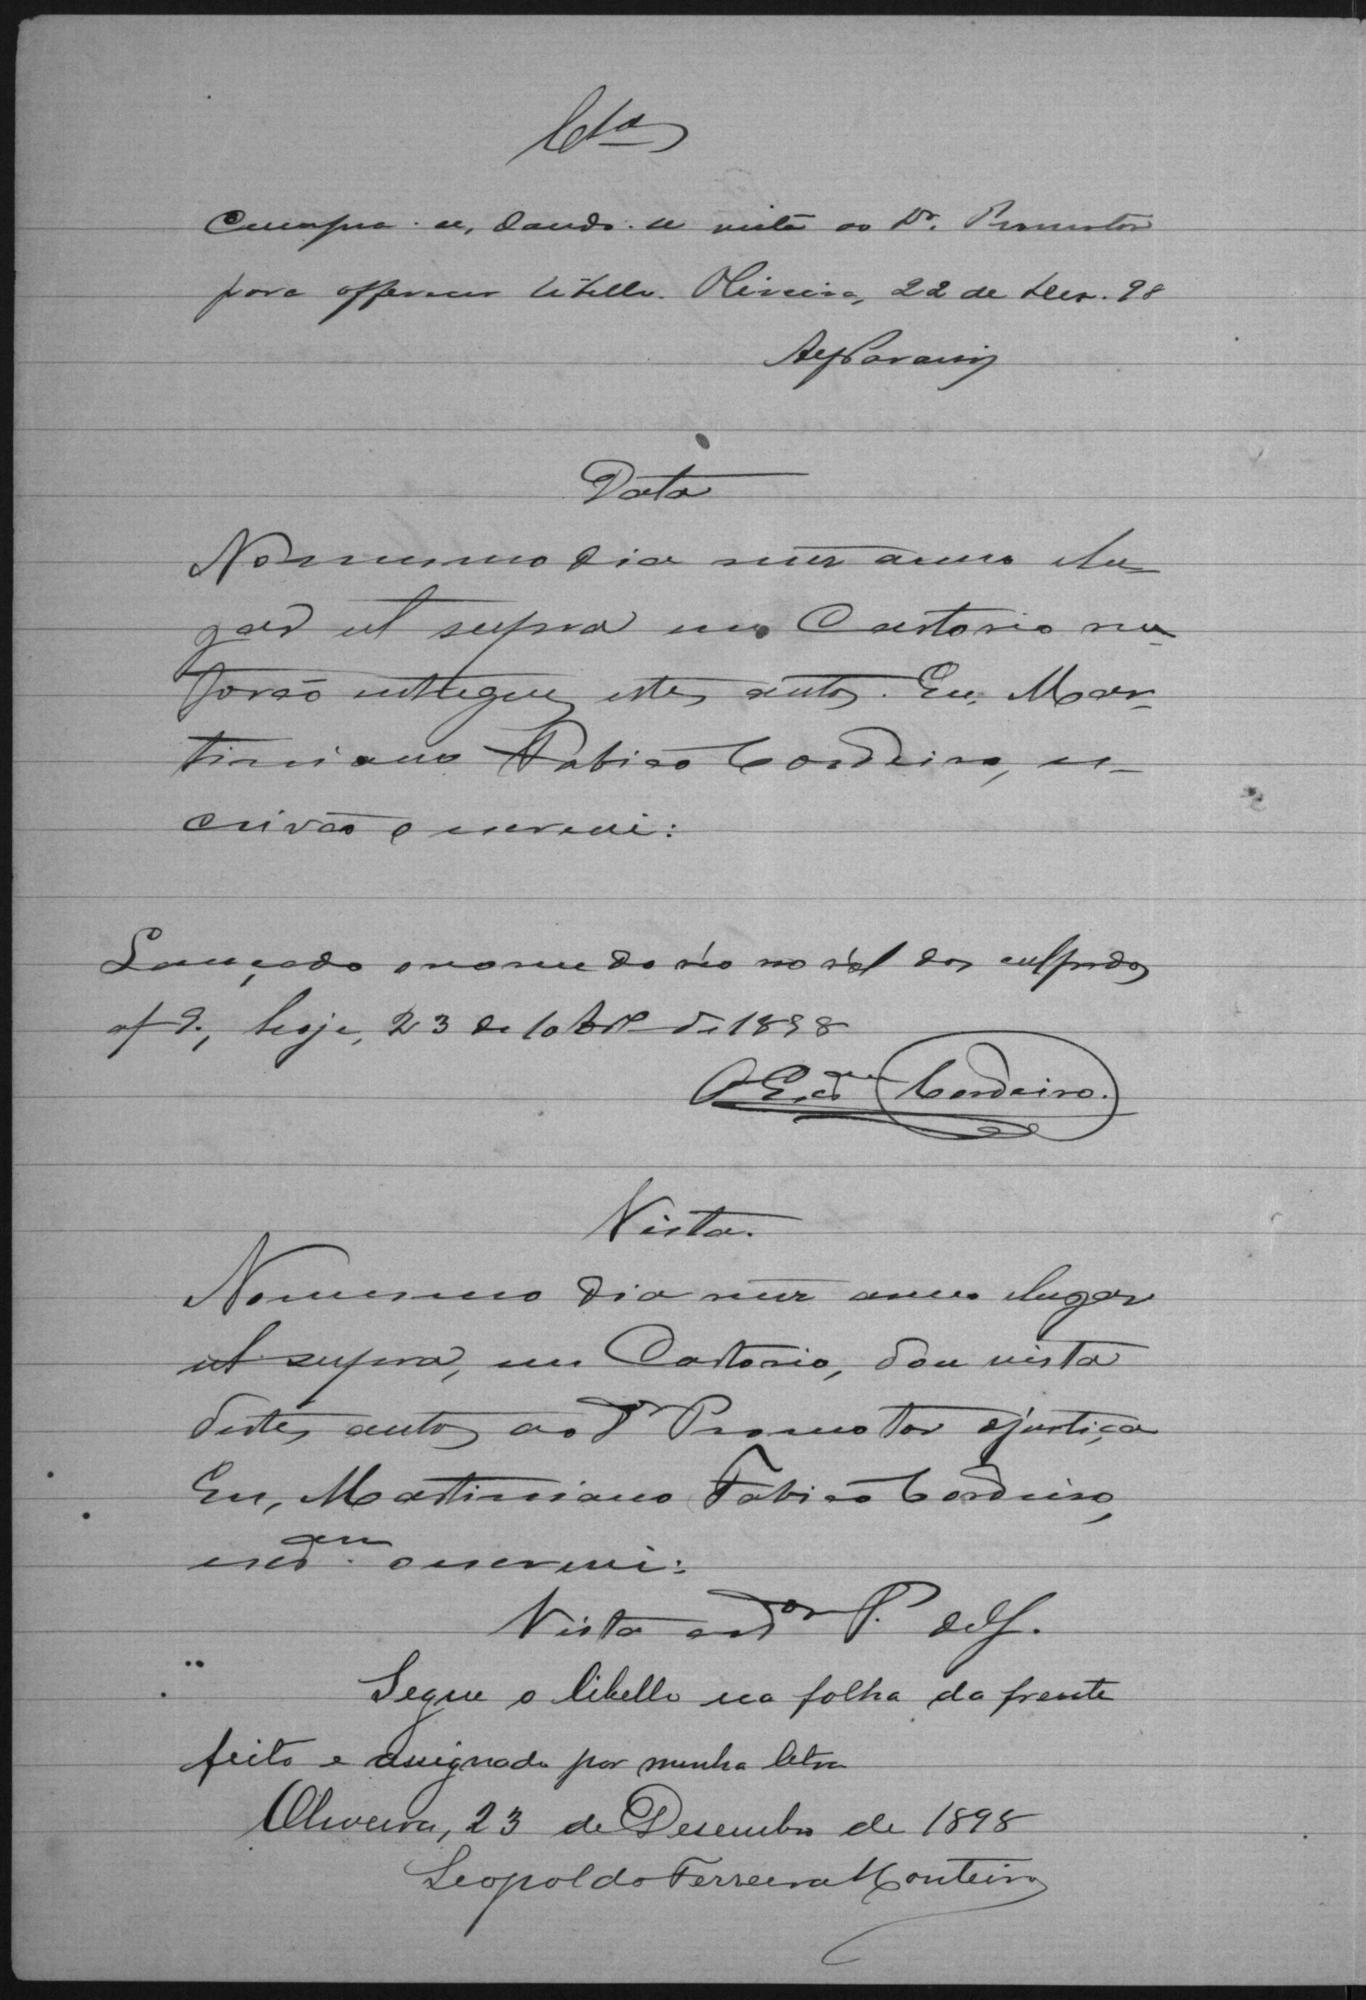 Cls
Cumpra-se, dando-se vista ao Dr. Promotor
para offerecer libello. Oliveira, 22 de Dez. 98
Data
No mesmo dia mez anno e lu-
gar ut supra em Cartorio me
forão entregues estes autos. Eu, Mar-
timiano Fabião Cordeiro, es-
crivão o escrevi:
Lançado o nome do réo no rol dos culpados
hoje, 23 de 10brº de 1898
O Escam Cordeiro.
Vista.
No mesmo dia mez anno e lugar
ut supra, em Cartorio, dou vista
destes autos ao Dr Promotor d justiça
Eu, Martimiano Fabião Cordeiro,
escam. o escrevi:
Vista ao Dor P. de J.
Segue o libello na folha da frente
feito e assignado por minha letra
Oliveira, 23 de Desembro de 1898
Leopoldo Ferreira Monteiro